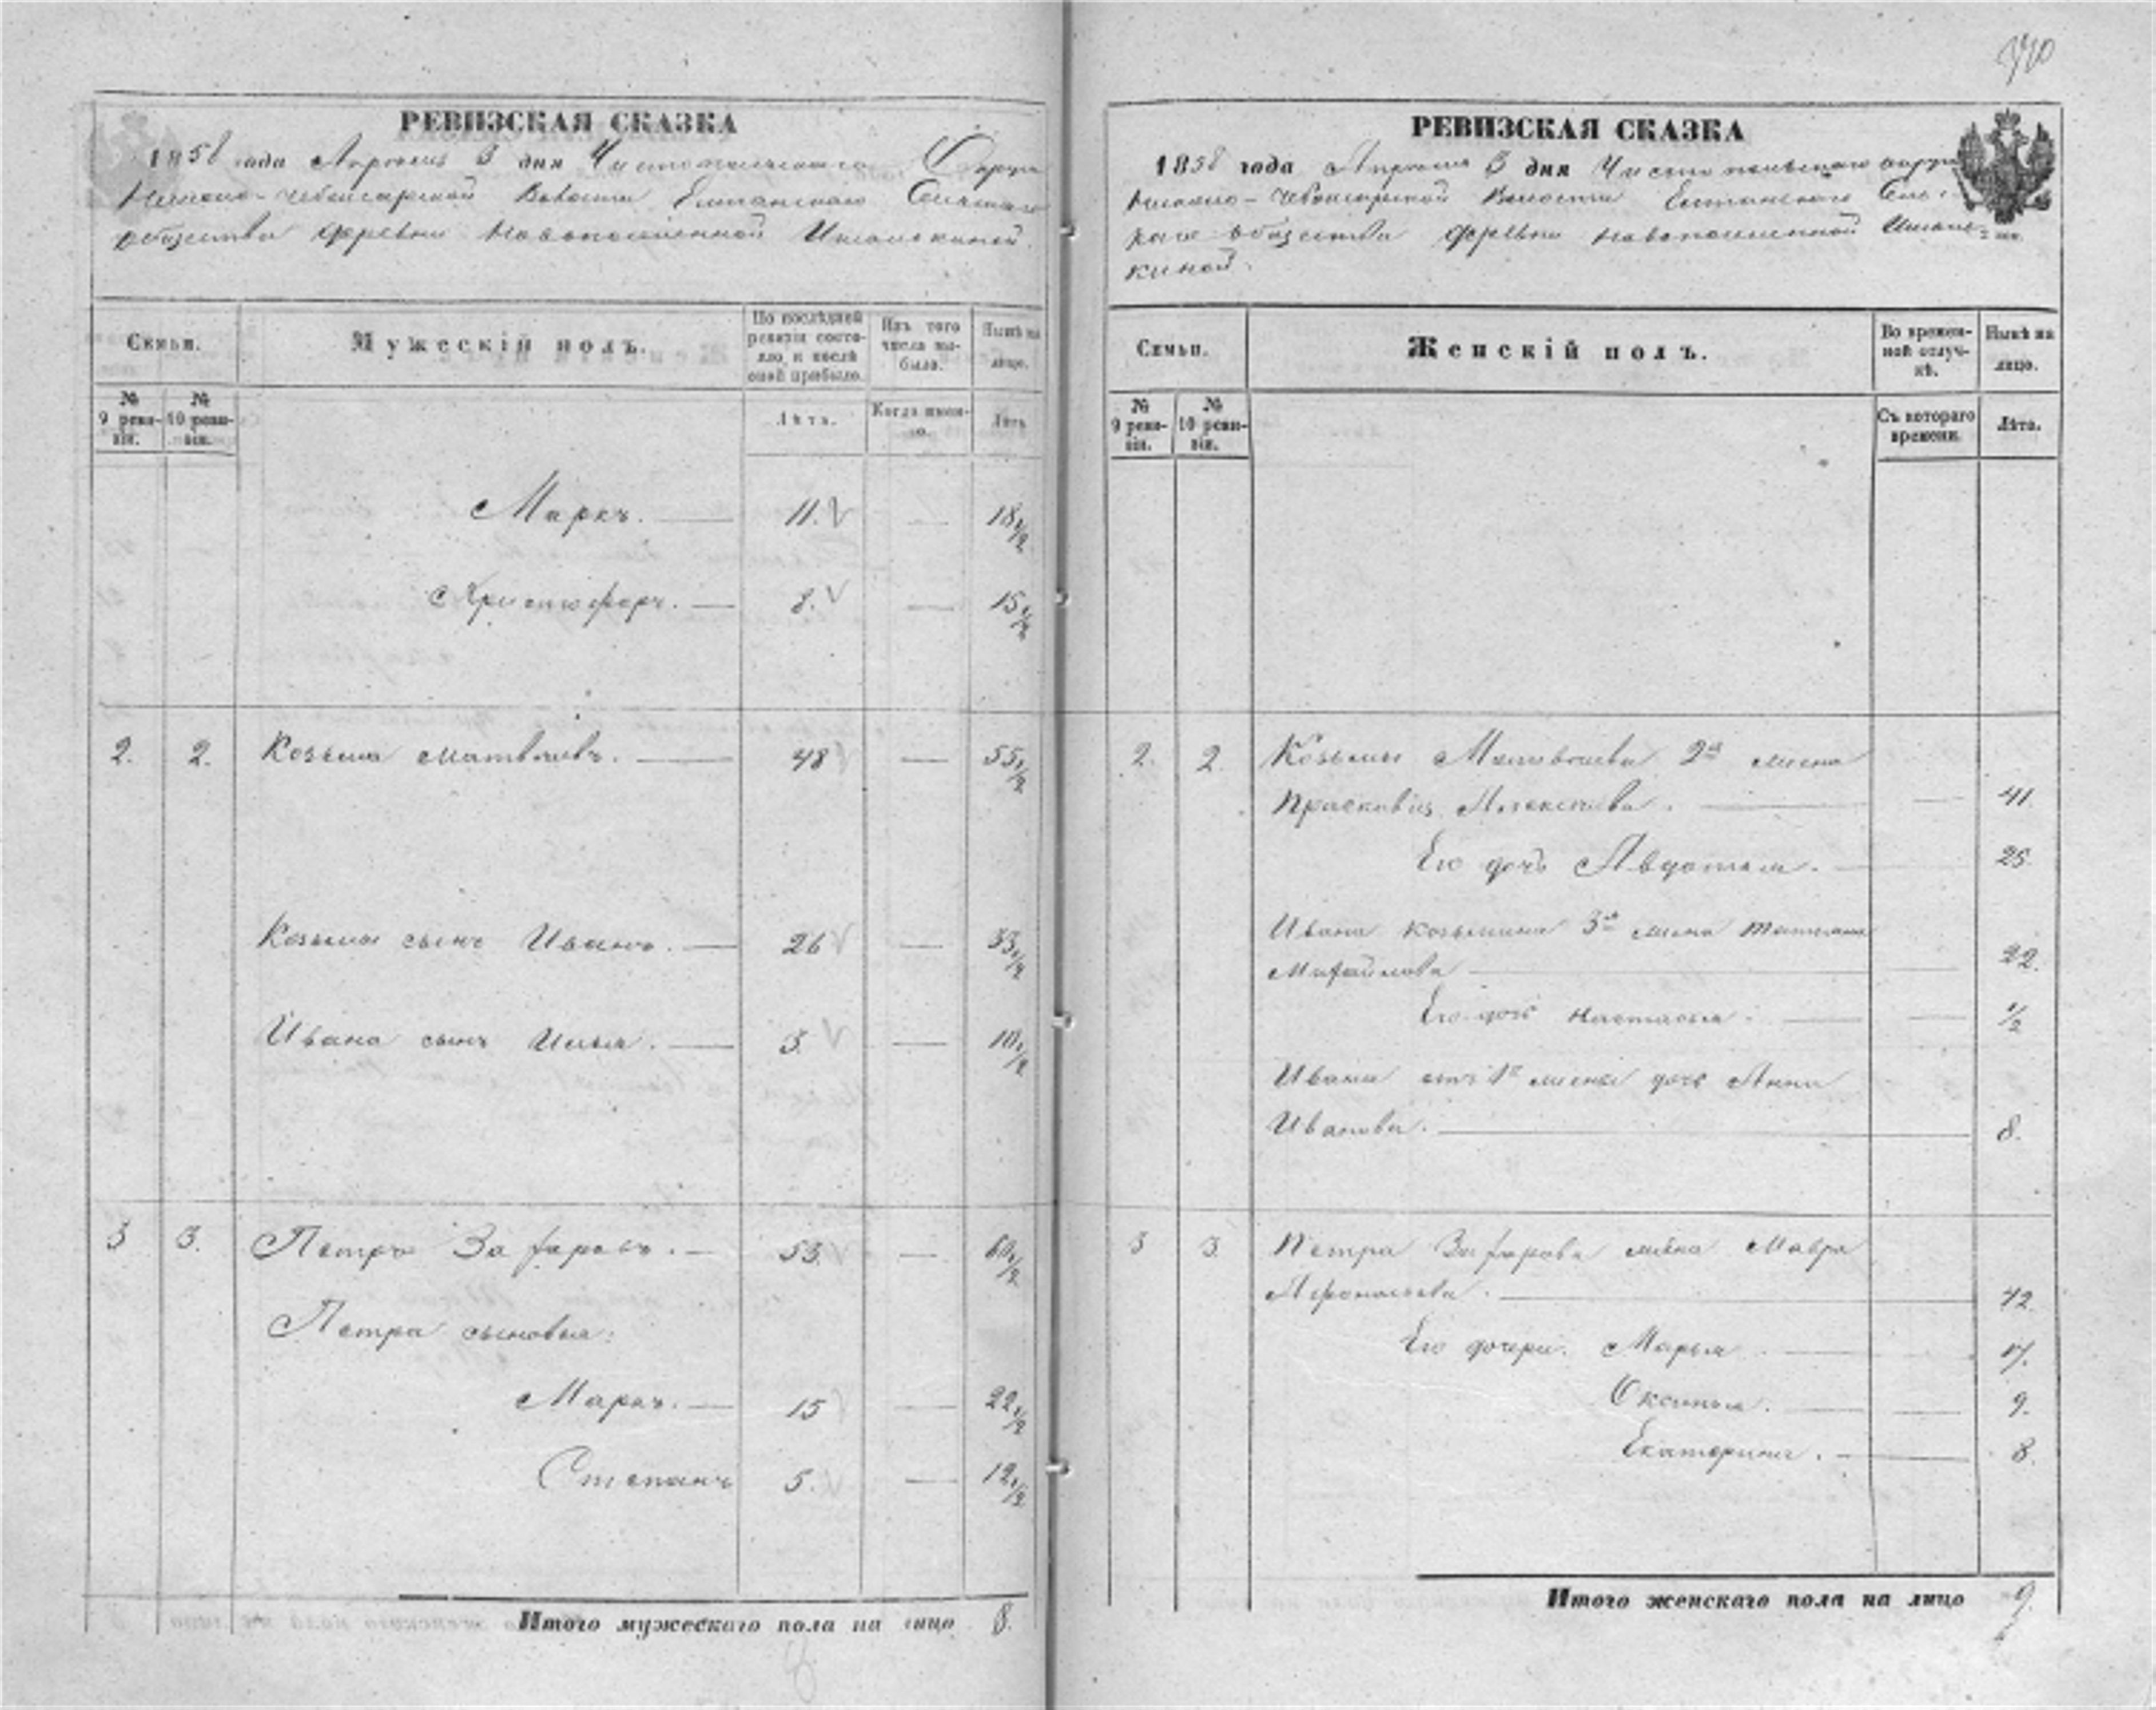 340
РЕВИЗСКАЯ СКАЗКА
1858 года Апреля 3 дня Чистопольскаго Округа
Никоно-Чебоксарской Волости Елтанскаго Сельскаго
общества деревни Новопоселенной
Семьи.
Мужескій полъ.
По послѣдней ревизіи состояло, и послѣ оной прибыло.
Изъ того числа выбыло.
Нынѣ на лицо.
№ 9 ревизіи.
№ 10 ревизіи.
Лѣта.
Когда именно.
Лѣта
Маркъ. — 11. — 18 1/2
Христофоръ. — 8. — 15 1/2
2. 2. Козьма Матвѣевъ. — 48 — 55 1/2
Козьмы сынъ Иванъ. — 26 — 33 1/2
Ивана сынъ Илья. — 3. — 10 1/2
3 3. Петръ Захаровъ. — 53. — 60 1/2
Петра сыновья:
Маркъ. — 15 — 22 1/2
Степанъ 5. — 12 1/2
Итого мужескаго пола на лицо 8.
РЕВИЗСКАЯ СКАЗКА
1858 года Апреля 3 дня Чистопольскаго округа
Никоно-Чебоксарской Волости Елтанскаго Сель-
скаго общества деревни Новопоселенной
киной.
Семьи.
Женскій полъ.
Во временной отлучкѣ.
Нынѣ на лицо.
№ 9 ревизіи.
№ 10 ревизіи.
Съ котораго времени.
Лѣта.
2. 2. Козьмы Матвѣева 2я жена
Прасковья Алексѣева. — 41.
Его дочь Авдотья. — 25.
Ивана Козьмина 3я жена Татьяна
Михайлова — 22.
Его дочь Настасья. — 1/2
Ивана отъ 1й жены дочь Анна
Иванова. — 8.
3 3. Петра Захарова жена Мавра
Афонасьева. — 42.
Его дочери. Марья — 17.
Оксинья. — 9.
Екатерина. — 8.
Итого женскаго пола на лицо 9.